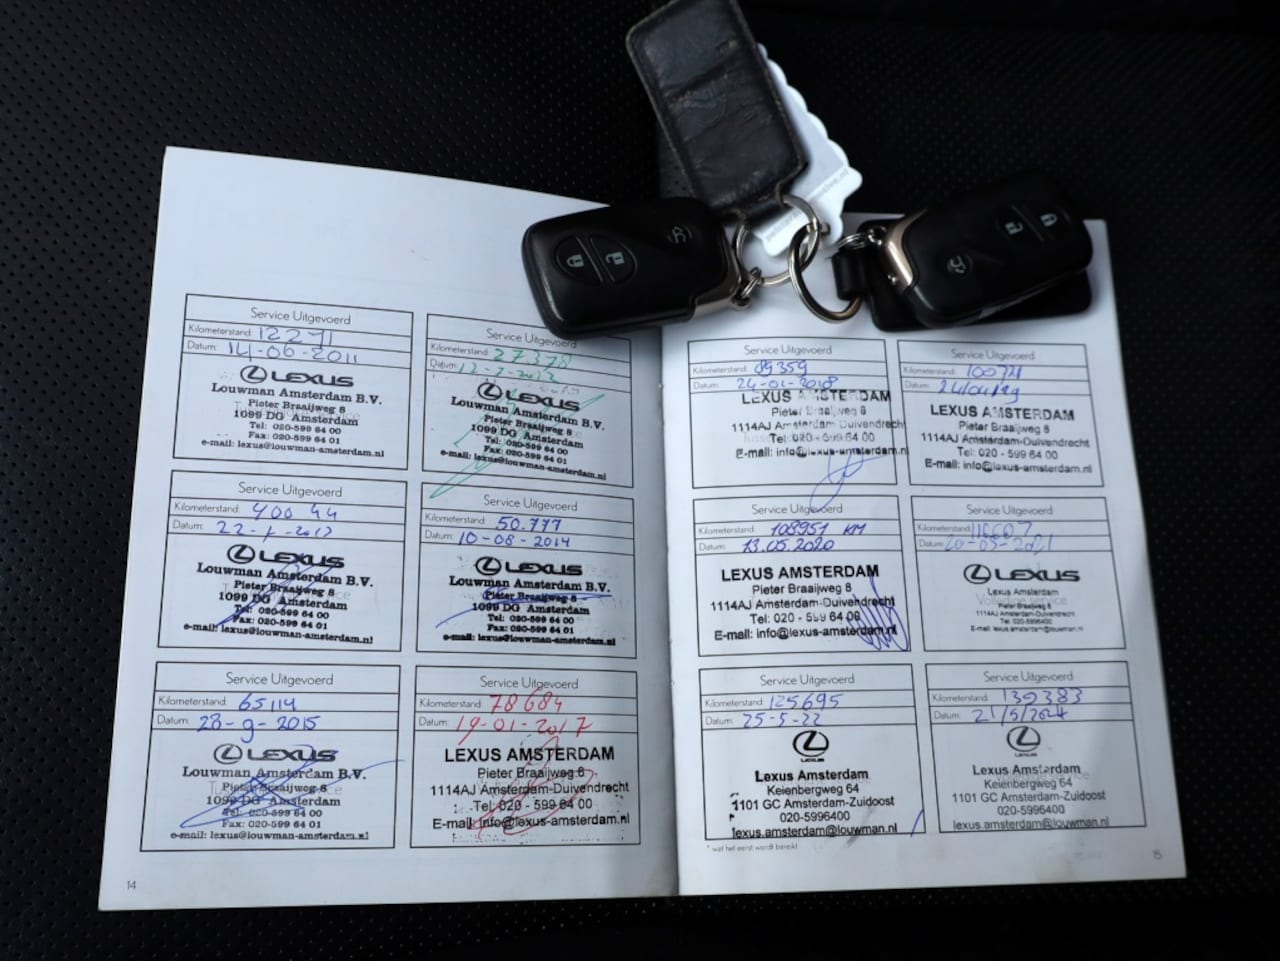 Service Uitgevoerd
Kilometerstand: 12271
Datum: 14-06-2011
LEXUS
Louwman Amsterdam B.V.
Pieter Braaijweg 8
1099 DG Amsterdam
Tel: 020-599 64 00
Fax: 020-599 64 01
e-mail: lexus@louwman-amsterdam.nl
Service Uitgevoerd
Kilometerstand: 27378
Datum: 12-7-2012
LEXUS
Louwman Amsterdam B.V.
Pieter Braaijweg 8
1099 DG Amsterdam
Tel: 020-599 64 00
Fax: 020-599 64 01
e-mail: lexus@louwman-amsterdam.nl
Service Uitgevoerd
Kilometerstand: 40044
Datum:
LEXUS
Louwman Amsterdam B.V.
Pieter Braaijweg 8
1099 DG Amsterdam
Tel: 020-599 64 00
Fax: 020-599 64 01
e-mail: lexus@louwman-amsterdam.nl
Service Uitgevoerd
Kilometerstand: 50.777
Datum: 10-08-2014
LEXUS
Louwman Amsterdam B.V.
Pieter Braaijweg 8
1099 DG Amsterdam
Tel: 020-599 64 00
Fax: 020-599 64 01
e-mail: lexus@louwman-amsterdam.nl
Service Uitgevoerd
Kilometerstand: 65114
Datum: 28-9-2015
LEXUS
Louwman Amsterdam B.V.
Pieter Braaijweg 8
1099 DG Amsterdam
Tel: 020-599 64 00
Fax: 020-599 64 01
e-mail: lexus@louwman-amsterdam.nl
Service Uitgevoerd
Kilometerstand: 78684
Datum: 19-01-2017
LEXUS AMSTERDAM
Pieter Braaijweg 8
1114AJ Amsterdam-Duivendrecht
Tel: 020 - 599 64 00
E-mail: info@lexus-amsterdam.nl
14
Service Uitgevoerd
Kilometerstand: 89359
Datum: 24-01-2018
LEXUS AMSTERDAM
Pieter Braaijweg 8
1114AJ Amsterdam Duivendrecht
Tel: 020 - 599 64 00
E-mail: info@lexus-amsterdam.nl
Service Uitgevoerd
Kilometerstand:
Datum:
LEXUS AMSTERDAM
Pieter Braaijweg 8
1114AJ Amsterdam-Duivendrecht
Tel: 020 - 599 64 00
E-mail: info@lexus-amsterdam.nl
Service Uitgevoerd
Kilometerstand: 108951 KM
Datum: 13.05.2020
LEXUS AMSTERDAM
Pieter Braaijweg 8
1114AJ Amsterdam-Duivendrecht
Tel: 020 - 599 64 00
E-mail: info@lexus-amsterdam.nl
Service Uitgevoerd
Kilometerstand: 116607
Datum:
LEXUS
Lexus Amsterdam
Pieter Braaijweg 8
1114AJ Amsterdam-Duivendrecht
Tel. 020-5996400
lexus.amsterdam@louwman.nl
Service Uitgevoerd
Kilometerstand: 125695
Datum: 25-5-22
LEXUS
Lexus Amsterdam
Keienbergweg 64
1101 GC Amsterdam-Zuidoost
020-5996400
lexus.amsterdam@louwman.nl
Service Uitgevoerd
Kilometerstand: 130383
Datum: 21/5/2024
LEXUS
Lexus Amsterdam
Keienbergweg 64
1101 GC Amsterdam-Zuidoost
020-5996400
lexus.amsterdam@louwman.nl
* wat het eerst wordt bereikt
15